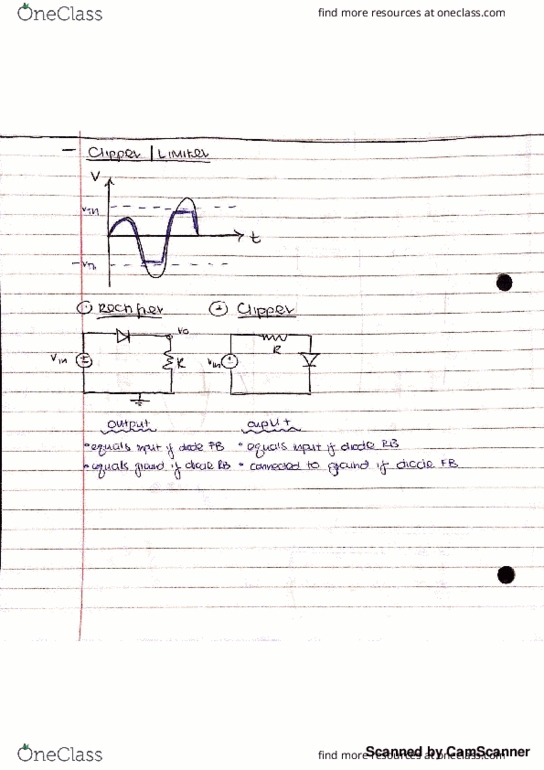 OneClass
find more resources at oneclass.com
- Clipper / Limiter
V
t
① Rectifier
② Clipper
Vo
Vin
R
Vin
R
output
output
• equals input if diode FB
• equals input if diode RB
• equals ground if diode RB
• connected to ground if diode FB
OneClass
find more resources at oneclass.com
Scanned by CamScanner